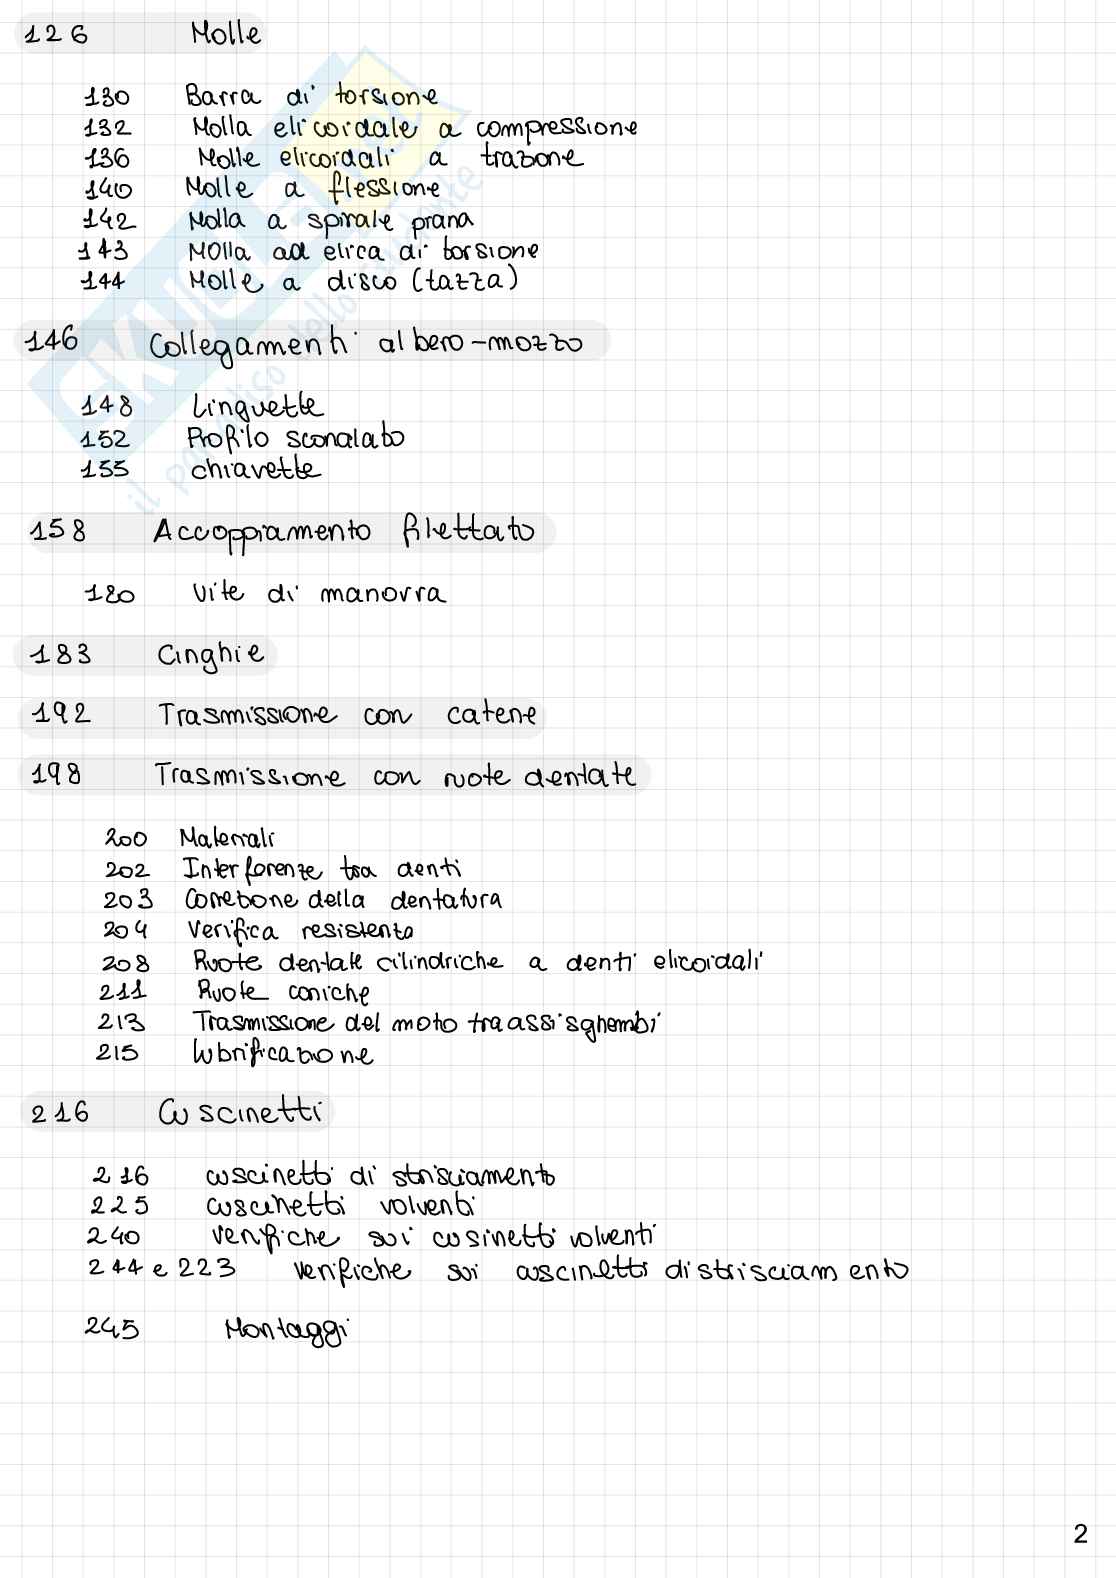 126 Molle
130 Barra di torsione
132 Molla elicoidale a compressione
136 Molle elicoidali a trazione
140 Molle a flessione
142 Molla a spirale piana
143 Molla ad elica di torsione
144 Molle a disco (tazza)
146 Collegamenti albero-mozzo
148 Linguette
152 Profilo scanalato
155 chiavette
158 Accoppiamento filettato
180 Vite di manovra
183 Cinghie
192 Trasmissione con catene
198 Trasmissione con ruote dentate
200 Materiali
202 Interferenze tra denti
203 Correzione della dentatura
204 Verifica resistenza
208 Ruote dentate cilindriche a denti elicoidali
211 Ruote coniche
213 Trasmissione del moto tra assi sghembi
215 lubrificazione
216 Cuscinetti
216 cuscinetti di strisciamento
225 cuscinetti volventi
240 verifiche sui cusinetti volventi
244 e 223 verifiche sui cuscinetti di strisciamento
245 Montaggi
SKUOLA.net
il paradiso dello studente
2